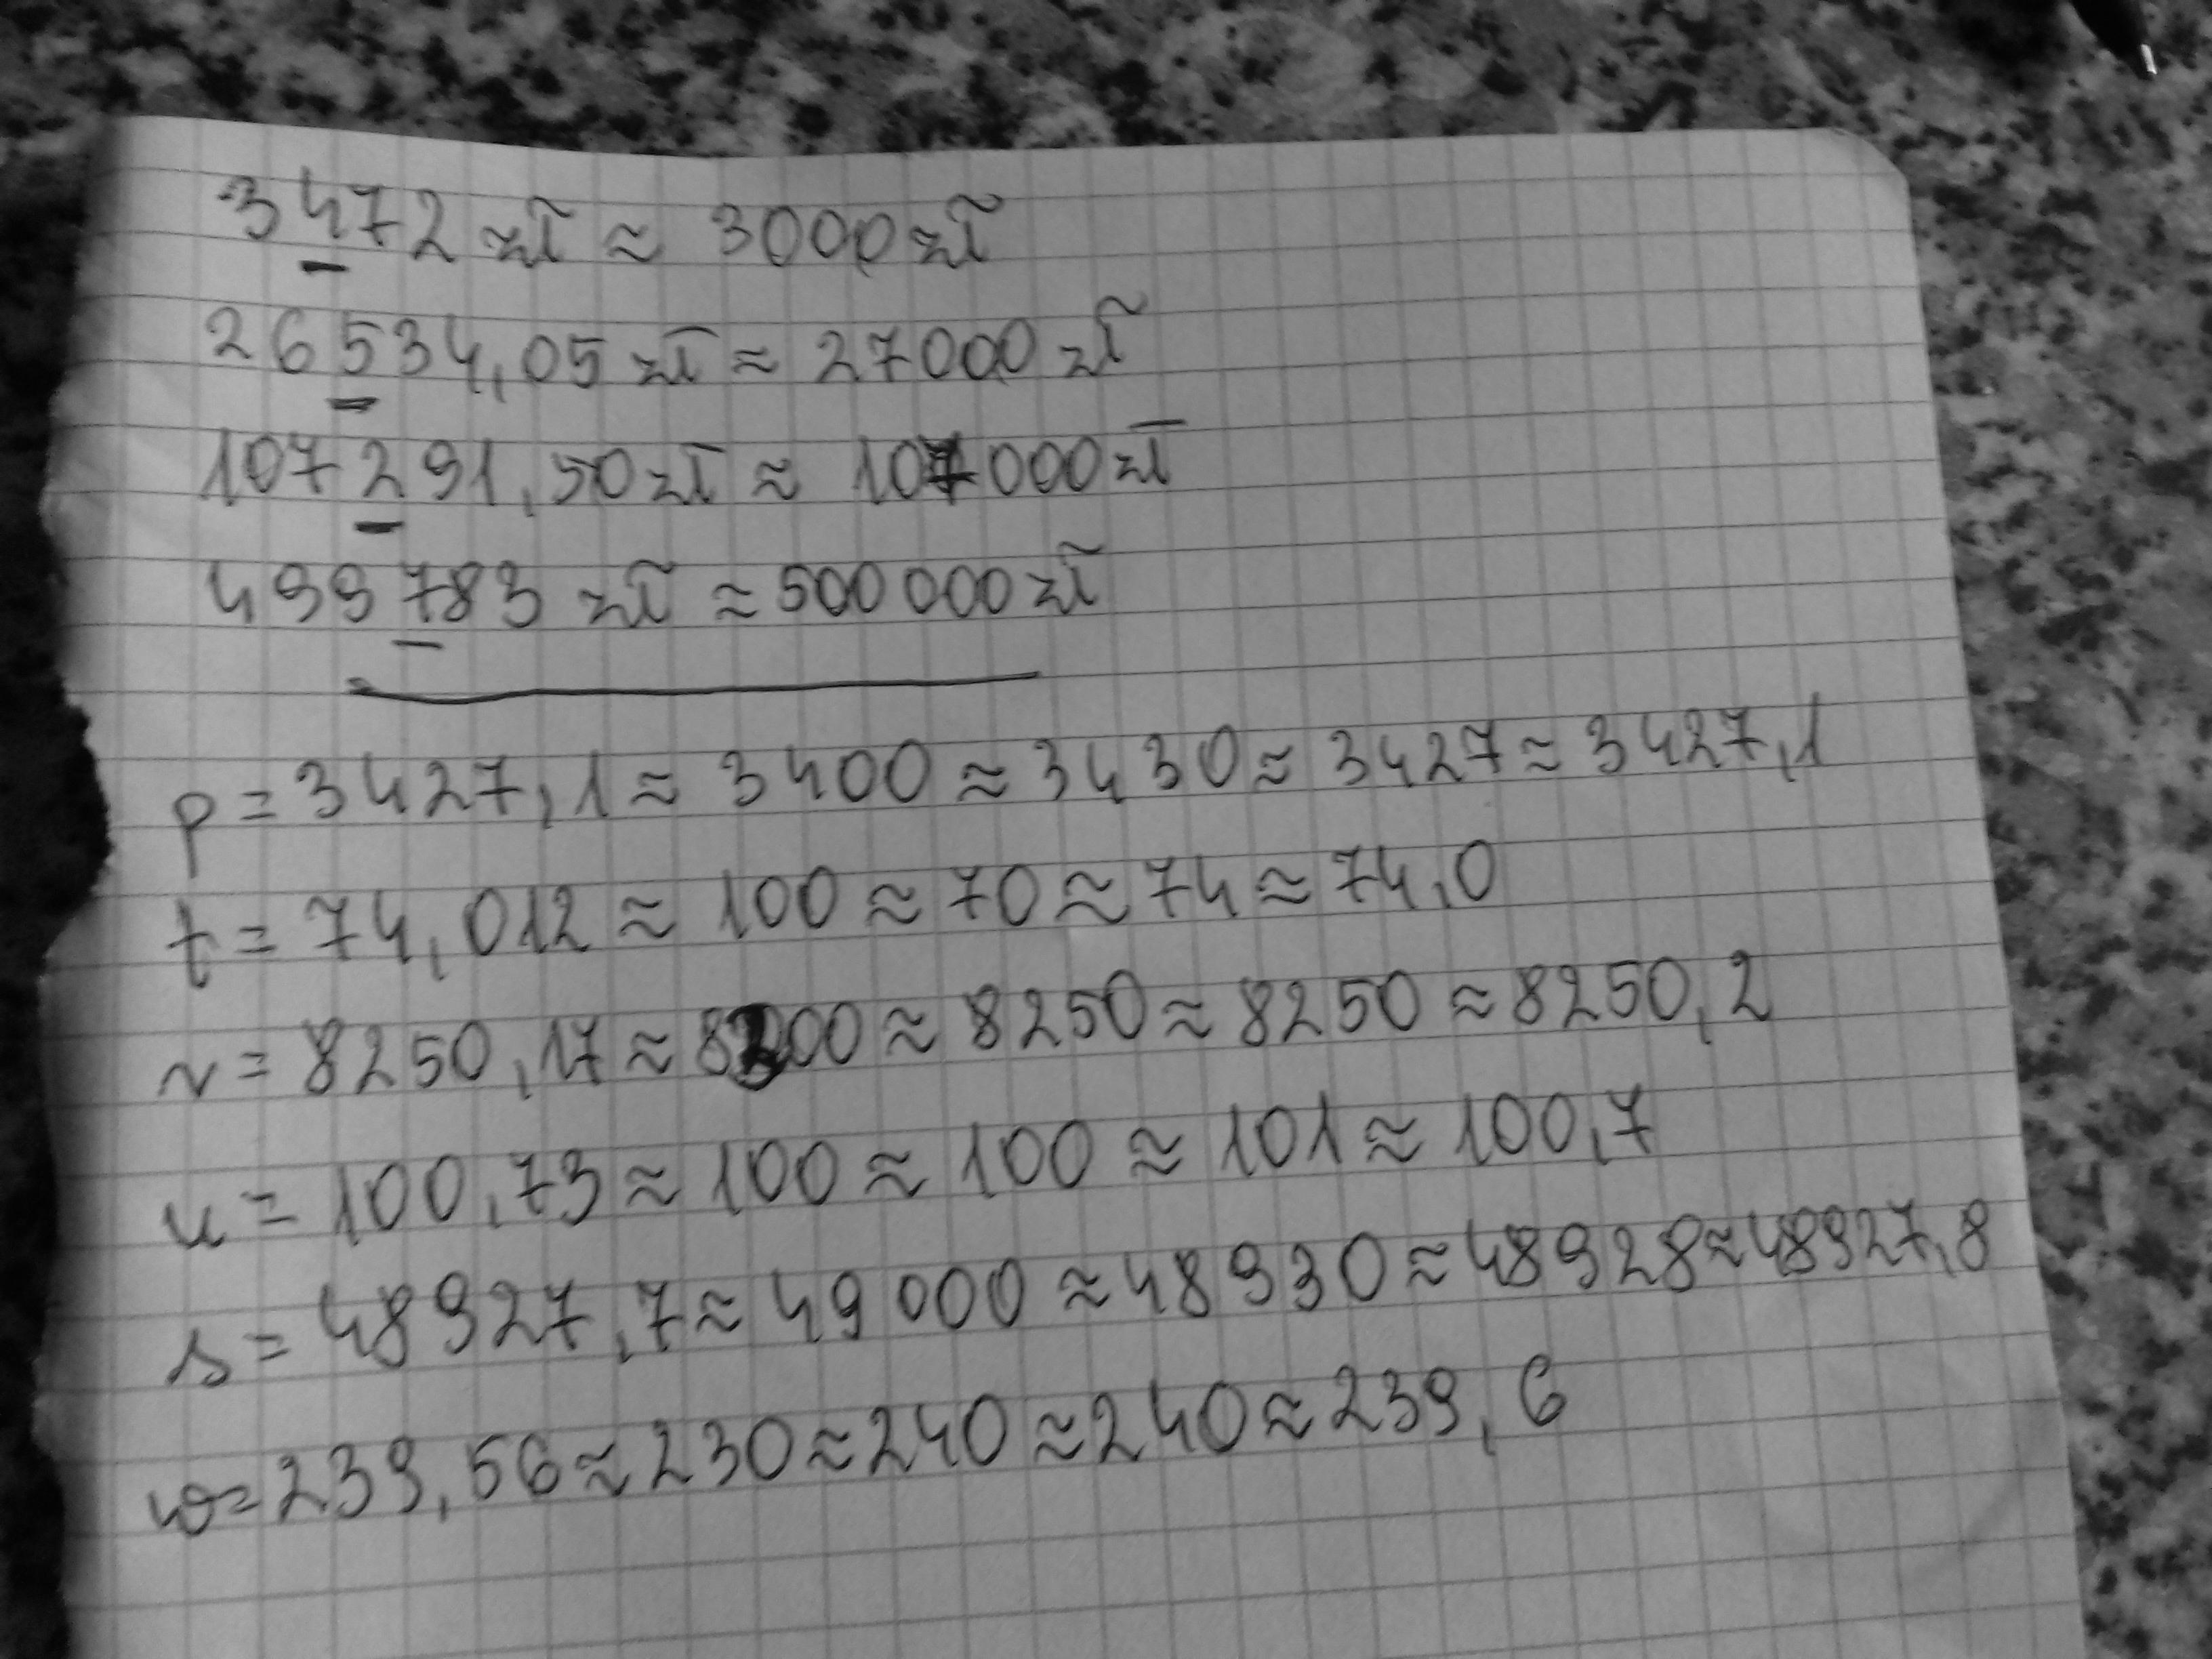 3472 zł ≈ 3000 zł
26534,05 zł ≈ 27000 zł
107291,50 zł ≈ 107000 zł
499783 zł ≈ 500 000 zł
p = 3427,1 ≈ 3400 ≈ 3430 ≈ 3427 ≈ 3427,1
t = 74,012 ≈ 100 ≈ 70 ≈ 74 ≈ 74,0
v = 8250,17 ≈ 8300 ≈ 8250 ≈ 8250 ≈ 8250,2
u = 100,73 ≈ 100 ≈ 100 ≈ 101 ≈ 100,7
s = 48927,7 ≈ 49 000 ≈ 48930 ≈ 48928 ≈ 48927,8
w = 239,56 ≈ 230 ≈ 240 ≈ 240 ≈ 239,6